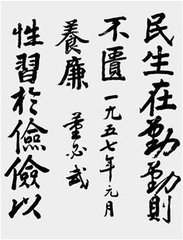 民生在勤勤則
不匱
性習於儉儉以
養廉
一九五七年元月
董必武